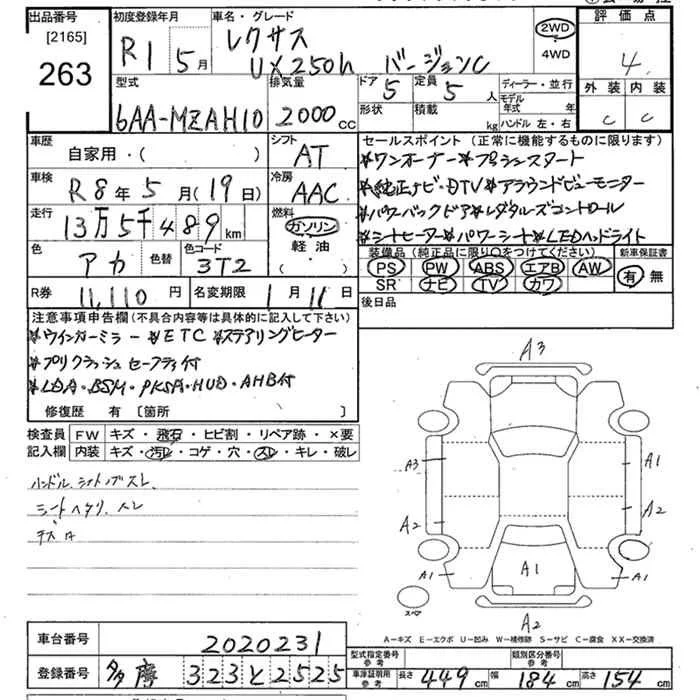 出品番号
[2165]
263
初度登録年月
R1 5月
車名・グレード
レクサス
UX250h バージョンC
2WD
4WD
評価点
4
外装 内装
C C
型式
6AA-MZAH10
排気量
2000cc
ドア 5
定員 5人
形状
積載 kg
ディーラー・並行
モデル年式 年
ハンドル 左・右
車歴
自家用・( )
シフト
AT
車検
R8年5月(19日)
冷房
AAC
走行
13万5千489km
燃料
ガソリン
軽油
( )
色
アカ
色替
色コード
3T2
R券
11,110円
名変期限
1月11日
セールスポイント(正常に機能するものに限ります)
*ワンオーナー*プッシュスタート
*純正ナビ・DTV*アラウンドビューモニター
*パワーバックドア*レダクルーズコントロール
*シートヒーター*パワーシート*LEDヘッドライト
装備品(純正品に限り○をつけてください)
PS PW ABS エアB AW
SR ナビ TV カワ
新車保証書
有 無
後日品
注意事項申告欄(不具合内容等は具体的に記入して下さい)
*ウインカーミラー*ETC*ステアリングヒーター
*プリクラッシュセーフティ付
*LDA・BSM・PKSA・HUD・AHB付
修復歴 有 [箇所 ]
検査員記入欄
FW キズ・飛石・ヒビ割・リペア跡・×要
内装 キズ・汚レ・コゲ・穴・スレ・キレ・破レ
ハンドル、シフトノブスレ
シートヘタリ、スレ
A3
A3 A1
A2 A2
A1 A1 A1
スペア
A2
A-キズ E-エクボ U-凹み W-補修跡 S-サビ C-腐食 XX-交換済
車台番号
2020231
登録番号
多摩 323と2525
型式指定番号
参考
類別区分番号
参考
車庫証明用
参考
長さ 449cm 幅 184cm 高さ 154cm